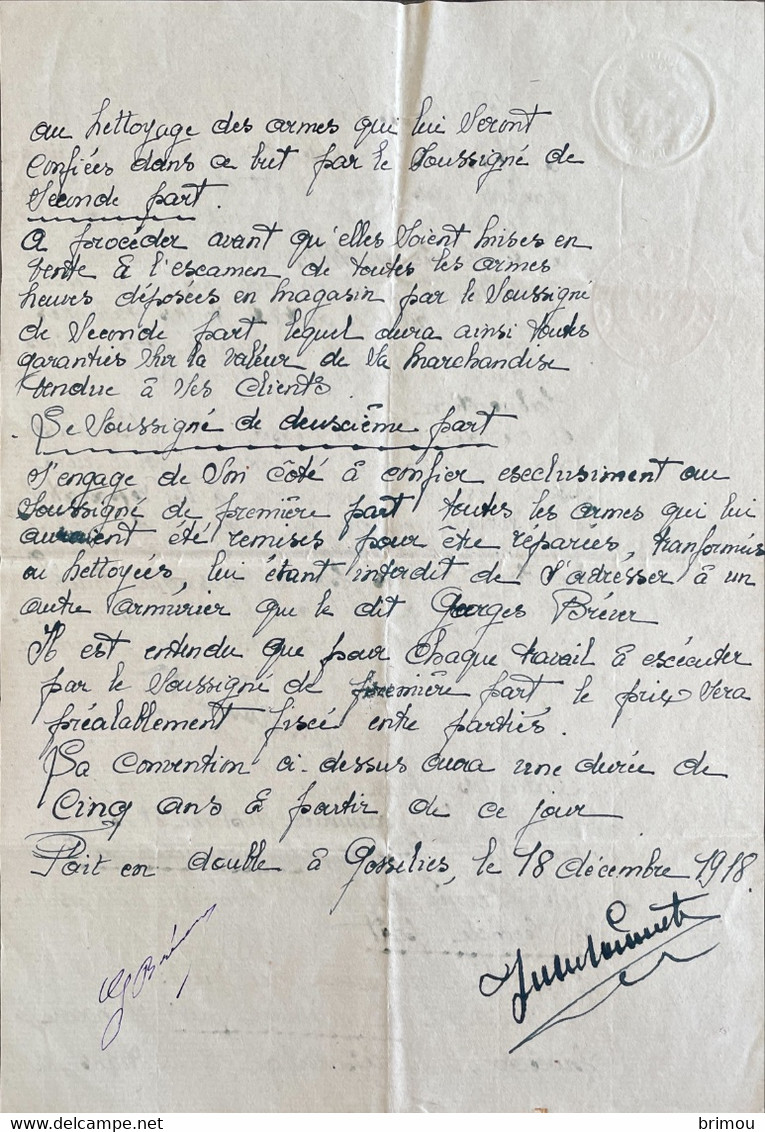 au nettoyage des armes qui lui seront
confiées dans ce but par le soussigné de
seconde part.
A procéder avant qu'elles soient mises en
vente à l'examen de toutes les armes
neuves déposées en magasin par le soussigné
de seconde part lequel aura ainsi toutes
garanties sur la valeur de sa marchandise
vendue à ses clients.
Le soussigné de deuxième part
s'engage de son côté à confier exclusiment au
soussigné de première part toutes les armes qui lui
auraient été remises pour être réparées, tranformées
ou nettoyées, lui étant interdit de s'adresser à un
autre armurier que le dit Georges Bréver
Il est entendu que pour chaque travail à exécuter
par le soussigné de première part le prix sera
préalablement fixé entre parties.
La convention ci-dessus aura une durée de
Cinq ans à partir de ce jour
Fait en double à Gosselies, le 18 décembre 1918.
delcampe.net
brimou